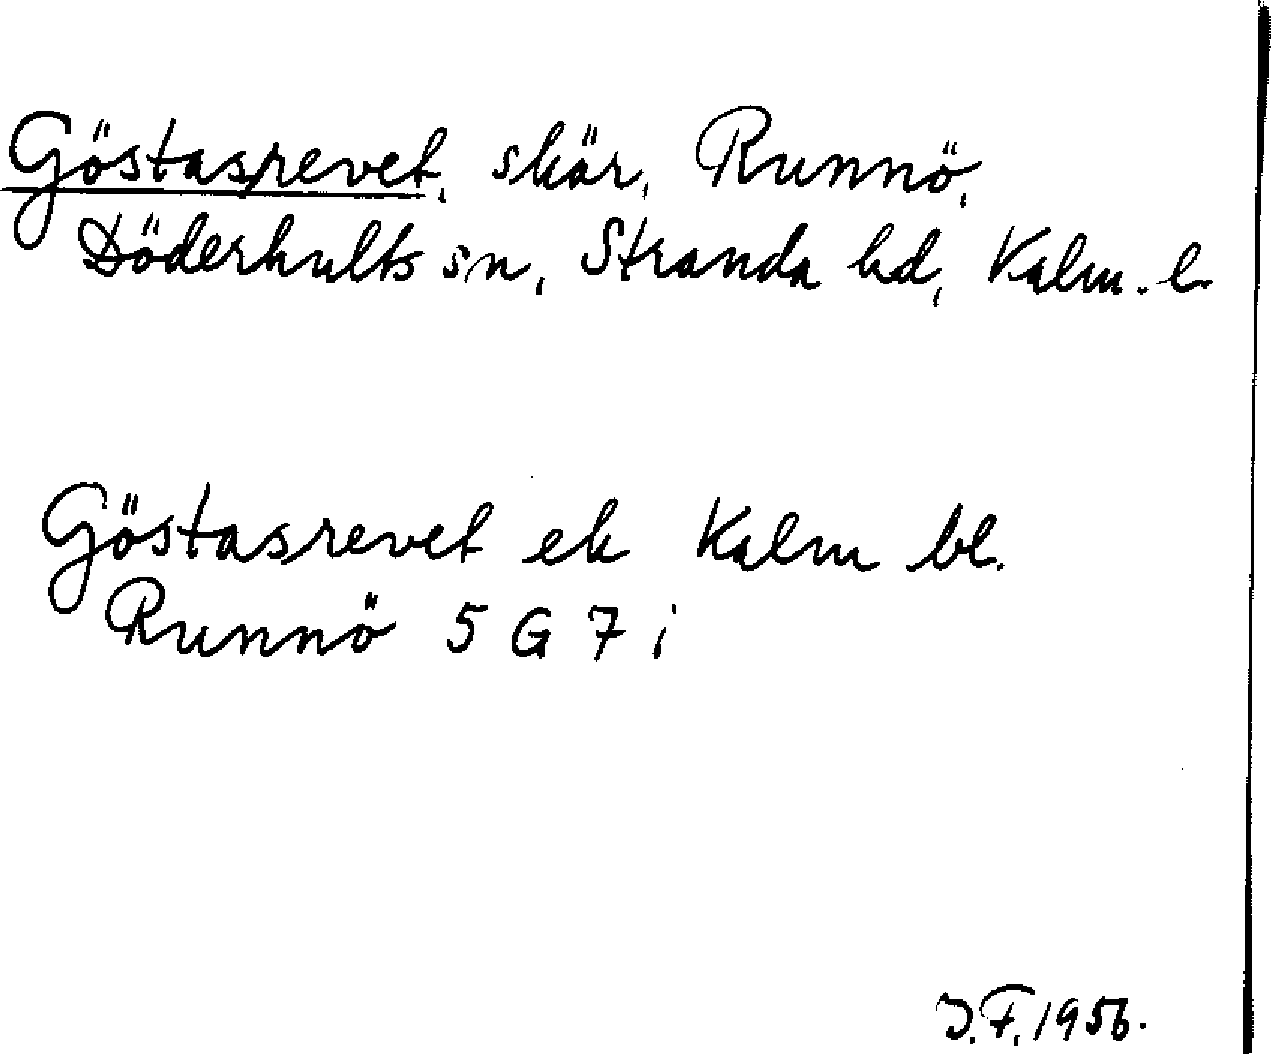 Göstasrevet, skär, Runnö,
Döderhults sn, Stranda hd, Kalm. l.
Göstasrevet ek Kalm bl.
Runnö 5 G 7 i
J.F. 1956.